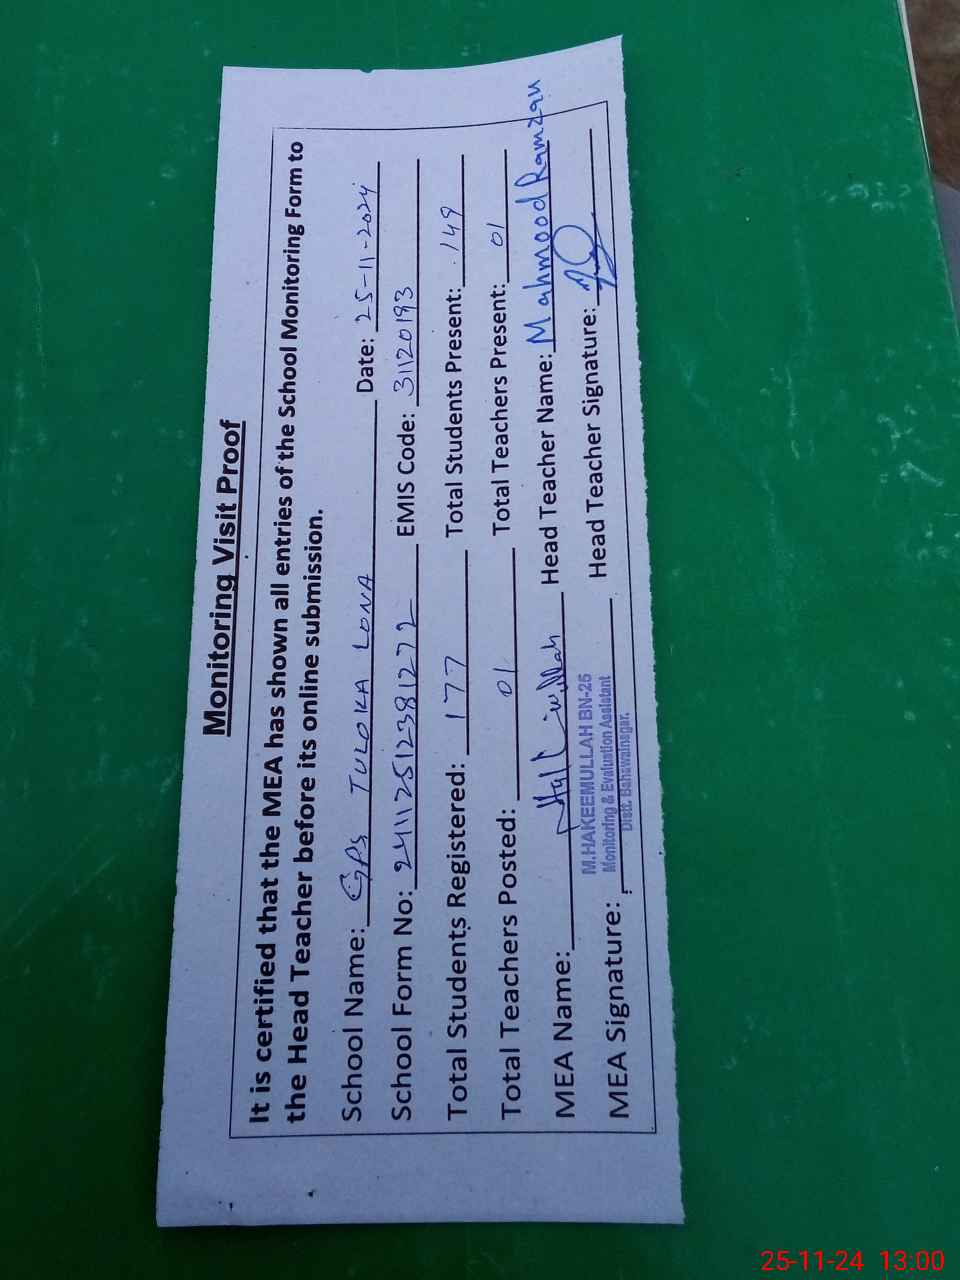 Monitoring Visit Proof
It is certified that the MEA has shown all entries of the School Monitoring Form to
the Head Teacher before its online submission.
School Name: GPS TULOKA LONA Date: 25-11-2024
School Form No: 24112512381272 EMIS Code: 31120193
Total Students Registered: 177 Total Students Present: 149
Total Teachers Posted: 01 Total Teachers Present: 01
MEA Name: Head Teacher Name: Mahmood Ramzan
MEA Signature: Head Teacher Signature:
M.HAKEEMULLAH BN-25
Monitoring & Evaluation Assistant
Distt. Bahawalnagar.
25-11-24 13:00